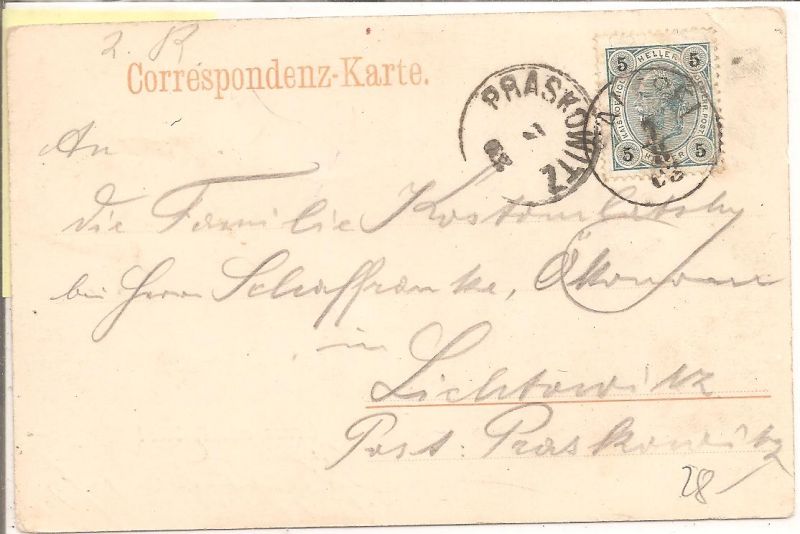 2. K
Correspondenz-Karte.
PRASKOWITZ
5 HELLER 5
KAIS. KÖNIGL. ÖSTERR. POST
5 HELLER 5
An
die Familie Kostomlatsky
bei Herrn Schaffranke, Ökonom
in
Lichtowitz
Post: Praskowitz
28